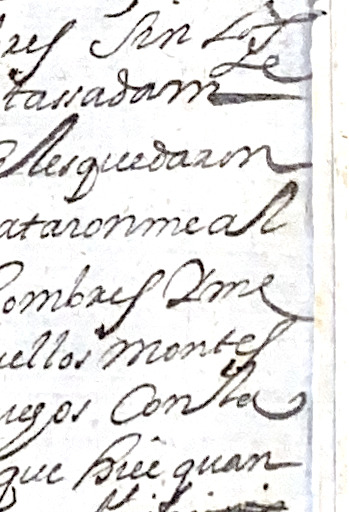 res sin los
tassadam
lesquedaron
ataronmeal
ombres Yme
uellos montes
uegos Conla
que hiçe quan